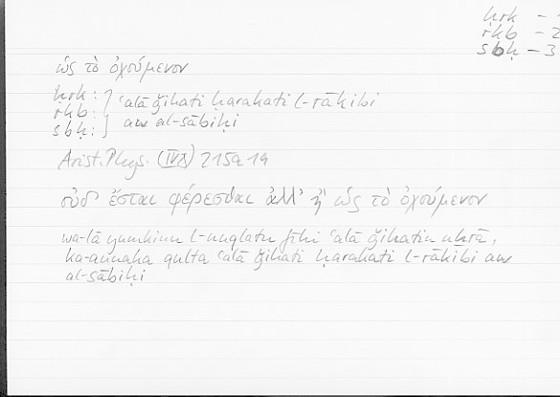 ḥrk –
rkb – 2
sbḥ – 3
ὡς τὸ ὀχούμενον
ḥrk : } ʿalā ǧihati ḥarakati l-rākibi
rkb :
sbḥ : aw al-sābiḥi
Arist. Phys. (IV 8) 215a 14
οὐδ' ἔσται φέρεσθαι ἀλλ' ἢ ὡς τὸ ὀχούμενον
wa-lā yumkinu l-nuqlatu fīhi ʿalā ǧihatin uḫrā,
ka-annaka qulta ʿalā ǧihati ḥarakati l-rākibi aw
al-sābiḥi